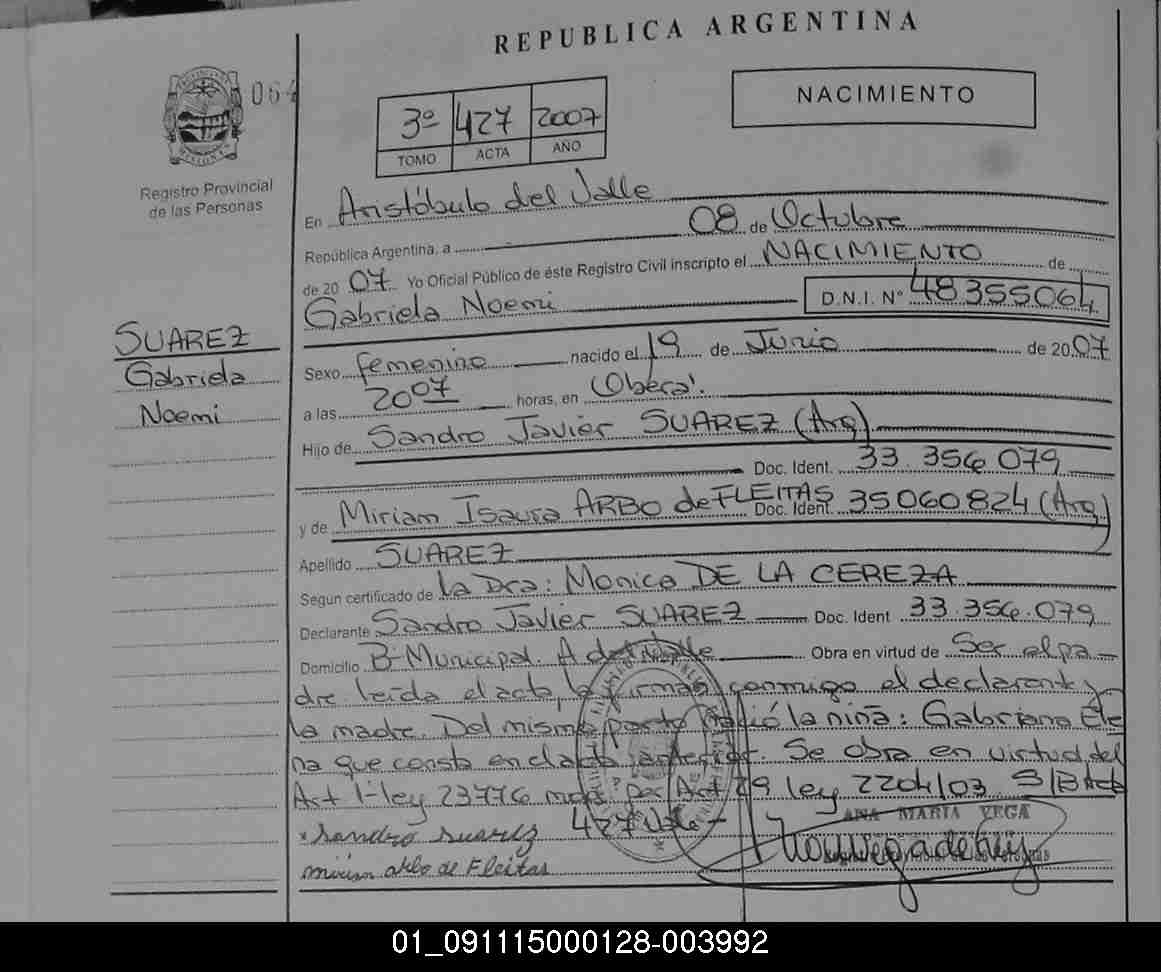 REPUBLICA ARGENTINA
064
3º 427 2007
TOMO ACTA AÑO
NACIMIENTO
Registro Provincial
de las Personas
En Aristóbulo del Valle
República Argentina, a 08 de Octubre
de 20 07 Yo Oficial Público de éste Registro Civil inscripto el NACIMIENTO de
Gabriela Noemi D.N.I. Nº 48355064
SUAREZ
Gabriela
Noemi
Sexo femenino nacido el 19 de Junio de 20 07
a las 2007 horas, en Oberá.
Hijo de Sandro Javier SUAREZ (Arg)
Doc. Ident. 33.356.079
y de Miriam Isaura ARBO de FLEITAS Doc. Ident. 35060824 (Arg)
Apellido SUAREZ
Segun certificado de la Dra: Monica DE LA CEREZA
Declarante Sandro Javier SUAREZ Doc. Ident 33.356.079
Domicilio Bº Municipal. A del Valle Obra en virtud de Ser el pa-
dre leida el acta, la firman conmigo el declarante y
la madre. Del mismo parto nació la niña: Gabriana Ele
na que consta en el acta anterior. Se obra en virtud del
Art 1º ley 23776 por Art 29 ley 2204/03 S/B Acta
427 Vale -
Sandro Suarez
miriam arbo de Fleitas
ANA MARIA VEGA